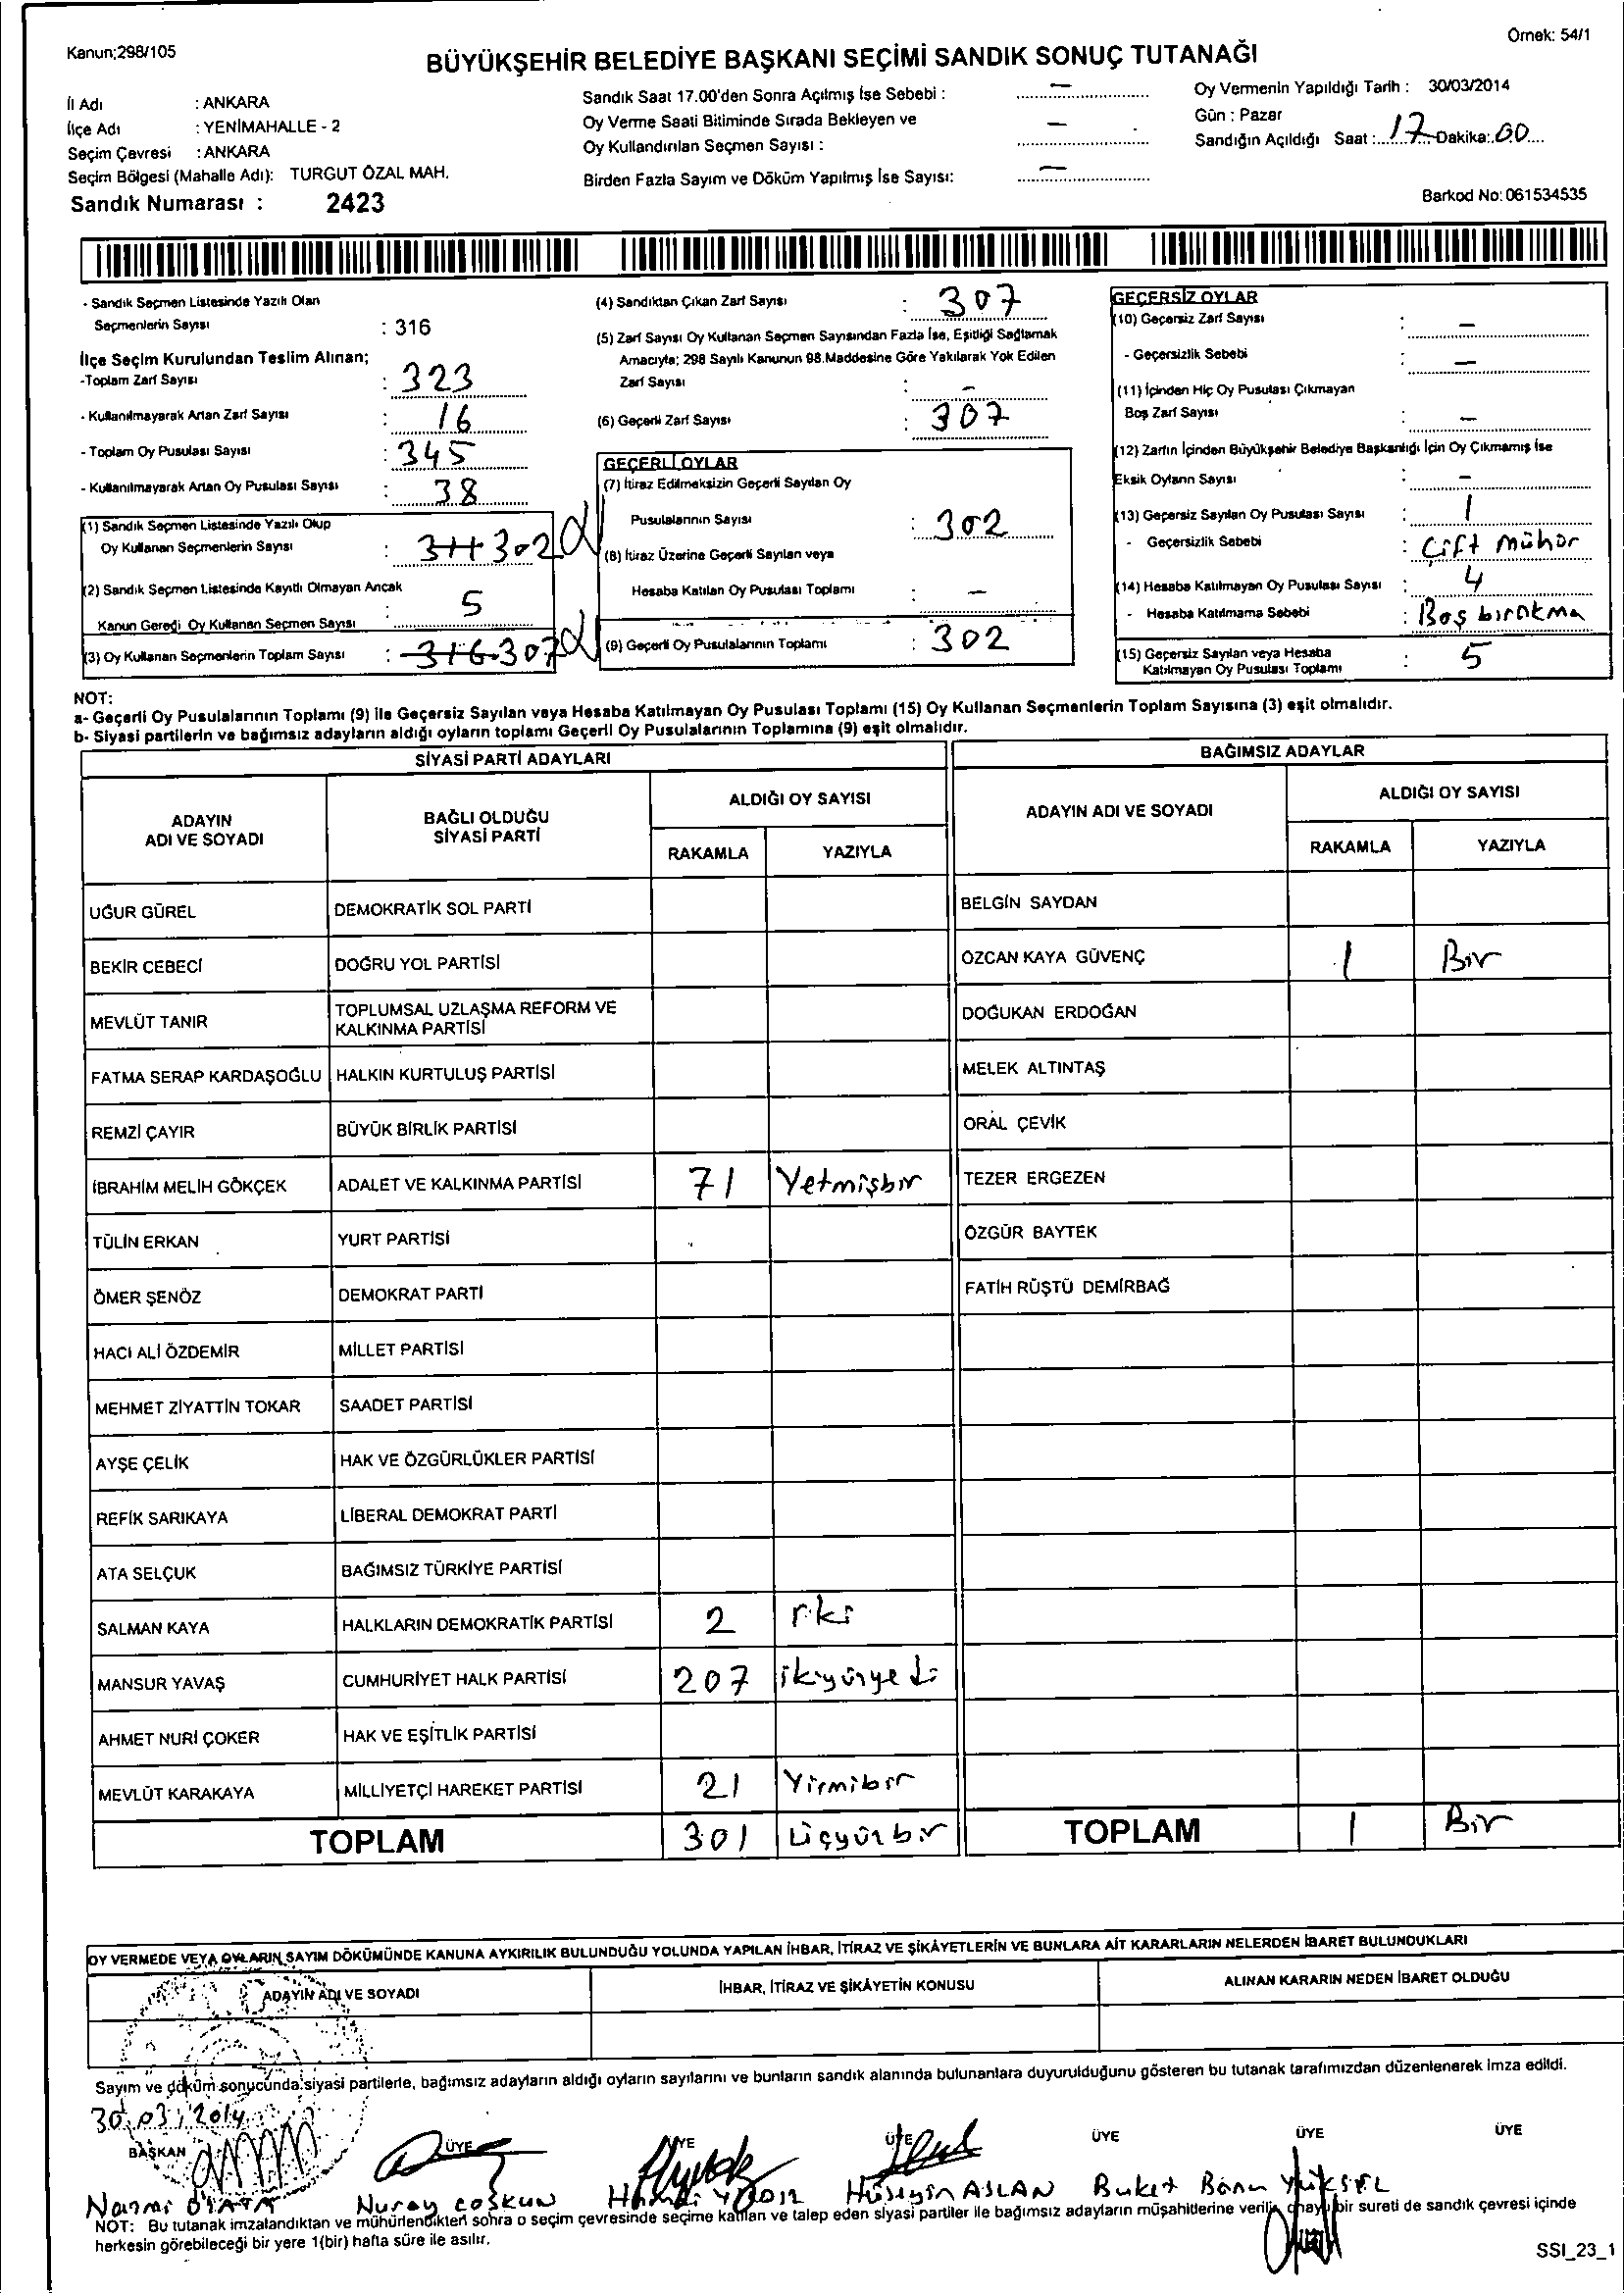 Kanun;298/105
Örnek: 54/1
BÜYÜKŞEHİR BELEDİYE BAŞKANI SEÇİMİ SANDIK SONUÇ TUTANAĞI
İl Adı : ANKARA
İlçe Adı : YENİMAHALLE - 2
Seçim Çevresi : ANKARA
Seçim Bölgesi (Mahalle Adı): TURGUT ÖZAL MAH.
Sandık Numarası : 2423
Sandık Saat 17.00'den Sonra Açılmış İse Sebebi : —
Oy Verme Saati Bitiminde Sırada Bekleyen ve
Oy Kullandırılan Seçmen Sayısı : —
Birden Fazla Sayım ve Döküm Yapılmış İse Sayısı: —
Oy Vermenin Yapıldığı Tarih : 30/03/2014
Gün : Pazar
Sandığın Açıldığı Saat : 17 Dakika: 00
Barkod No: 061534535
- Sandık Seçmen Listesinde Yazılı Olan
Seçmenlerin Sayısı : 316
İlçe Seçim Kurulundan Teslim Alınan;
-Toplam Zarf Sayısı : 323
- Kullanılmayarak Artan Zarf Sayısı : 16
- Toplam Oy Pusulası Sayısı : 345
- Kullanılmayarak Artan Oy Pusulası Sayısı : 38
(1) Sandık Seçmen Listesinde Yazılı Olup
Oy Kullanan Seçmenlerin Sayısı : 311 302
(2) Sandık Seçmen Listesinde Kayıtlı Olmayan Ancak
Kanun Gereği Oy Kullanan Seçmen Sayısı : 5
(3) Oy Kullanan Seçmenlerin Toplam Sayısı : 316 307
(4) Sandıktan Çıkan Zarf Sayısı : 307
(5) Zarf Sayısı Oy Kullanan Seçmen Sayısından Fazla İse, Eşitliği Sağlamak
Amacıyla; 298 Sayılı Kanunun 98.Maddesine Göre Yakılarak Yok Edilen
Zarf Sayısı : -
(6) Geçerli Zarf Sayısı : 307
GEÇERLİ OYLAR
(7) İtiraz Edilmeksizin Geçerli Sayılan Oy
Pusulalarının Sayısı : 302
(8) İtiraz Üzerine Geçerli Sayılan veya
Hesaba Katılan Oy Pusulası Toplamı : -
(9) Geçerli Oy Pusulalarının Toplamı : 302
GEÇERSİZ OYLAR
(10) Geçersiz Zarf Sayısı : -
- Geçersizlik Sebebi : -
(11) İçinden Hiç Oy Pusulası Çıkmayan
Boş Zarf Sayısı : -
(12) Zarfın İçinden Büyükşehir Belediye Başkanlığı İçin Oy Çıkmamış İse
Eksik Oyların Sayısı : -
(13) Geçersiz Sayılan Oy Pusulası Sayısı : 1
- Geçersizlik Sebebi : Çift mühür
(14) Hesaba Katılmayan Oy Pusulası Sayısı : 4
- Hesaba Katılmama Sebebi : Boş bırakma
(15) Geçersiz Sayılan veya Hesaba
Katılmayan Oy Pusulası Toplamı : 5
NOT:
a- Geçerli Oy Pusulalarının Toplamı (9) ile Geçersiz Sayılan veya Hesaba Katılmayan Oy Pusulası Toplamı (15) Oy Kullanan Seçmenlerin Toplam Sayısına (3) eşit olmalıdır.
b- Siyasi partilerin ve bağımsız adayların aldığı oyların toplamı Geçerli Oy Pusulalarının Toplamına (9) eşit olmalıdır.
SİYASİ PARTİ ADAYLARI
ADAYIN ADI VE SOYADI BAĞLI OLDUĞU SİYASİ PARTİ ALDIĞI OY SAYISI
RAKAMLA YAZIYLA
UĞUR GÜREL DEMOKRATİK SOL PARTİ
BEKİR CEBECİ DOĞRU YOL PARTİSİ
MEVLÜT TANIR TOPLUMSAL UZLAŞMA REFORM VE KALKINMA PARTİSİ
FATMA SERAP KARDAŞOĞLU HALKIN KURTULUŞ PARTİSİ
REMZİ ÇAYIR BÜYÜK BİRLİK PARTİSİ
İBRAHİM MELİH GÖKÇEK ADALET VE KALKINMA PARTİSİ 71 Yetmişbir
TÜLİN ERKAN YURT PARTİSİ
ÖMER ŞENÖZ DEMOKRAT PARTİ
HACI ALİ ÖZDEMİR MİLLET PARTİSİ
MEHMET ZİYATTİN TOKAR SAADET PARTİSİ
AYŞE ÇELİK HAK VE ÖZGÜRLÜKLER PARTİSİ
REFİK SARIKAYA LİBERAL DEMOKRAT PARTİ
ATA SELÇUK BAĞIMSIZ TÜRKİYE PARTİSİ
SALMAN KAYA HALKLARIN DEMOKRATİK PARTİSİ 2 iki
MANSUR YAVAŞ CUMHURİYET HALK PARTİSİ 207 ikiyüzyedi
AHMET NURİ ÇOKER HAK VE EŞİTLİK PARTİSİ
MEVLÜT KARAKAYA MİLLİYETÇİ HAREKET PARTİSİ 21 Yirmibir
TOPLAM 301 Üçyüzbir
BAĞIMSIZ ADAYLAR
ADAYIN ADI VE SOYADI ALDIĞI OY SAYISI
RAKAMLA YAZIYLA
BELGİN SAYDAN
ÖZCAN KAYA GÜVENÇ 1 Bir
DOĞUKAN ERDOĞAN
MELEK ALTINTAŞ
ORAL ÇEVİK
TEZER ERGEZEN
ÖZGÜR BAYTEK
FATİH RÜŞTÜ DEMİRBAĞ
TOPLAM 1 Bir
OY VERMEDE VEYA OYLARIN SAYIM DÖKÜMÜNDE KANUNA AYKIRILIK BULUNDUĞU YOLUNDA YAPILAN İHBAR, İTİRAZ VE ŞİKÂYETLERİN VE BUNLARA AİT KARARLARIN NELERDEN İBARET BULUNDUKLARI
ADAYIN ADI VE SOYADI İHBAR, İTİRAZ VE ŞİKÂYETİN KONUSU ALINAN KARARIN NEDEN İBARET OLDUĞU
Sayım ve döküm sonucunda siyasi partilerle, bağımsız adayların aldığı oyların sayılarını ve bunların sandık alanında bulunanlara duyurulduğunu gösteren bu tutanak tarafımızdan düzenlenerek imza edildi.
30.03.2014
BAŞKAN ÜYE ÜYE ÜYE ÜYE ÜYE ÜYE
Nuray COŞKUN Hüseyin ASLAN Buket Banu YÜKSEL
NOT: Bu tutanak imzalandıktan ve mühürlendikten sonra o seçim çevresinde seçime katılan ve talep eden siyasi partiler ile bağımsız adayların müşahitlerine verilir, onaylı bir sureti de sandık çevresi içinde
herkesin görebileceği bir yere 1(bir) hafta süre ile asılır.
SSI_23_1